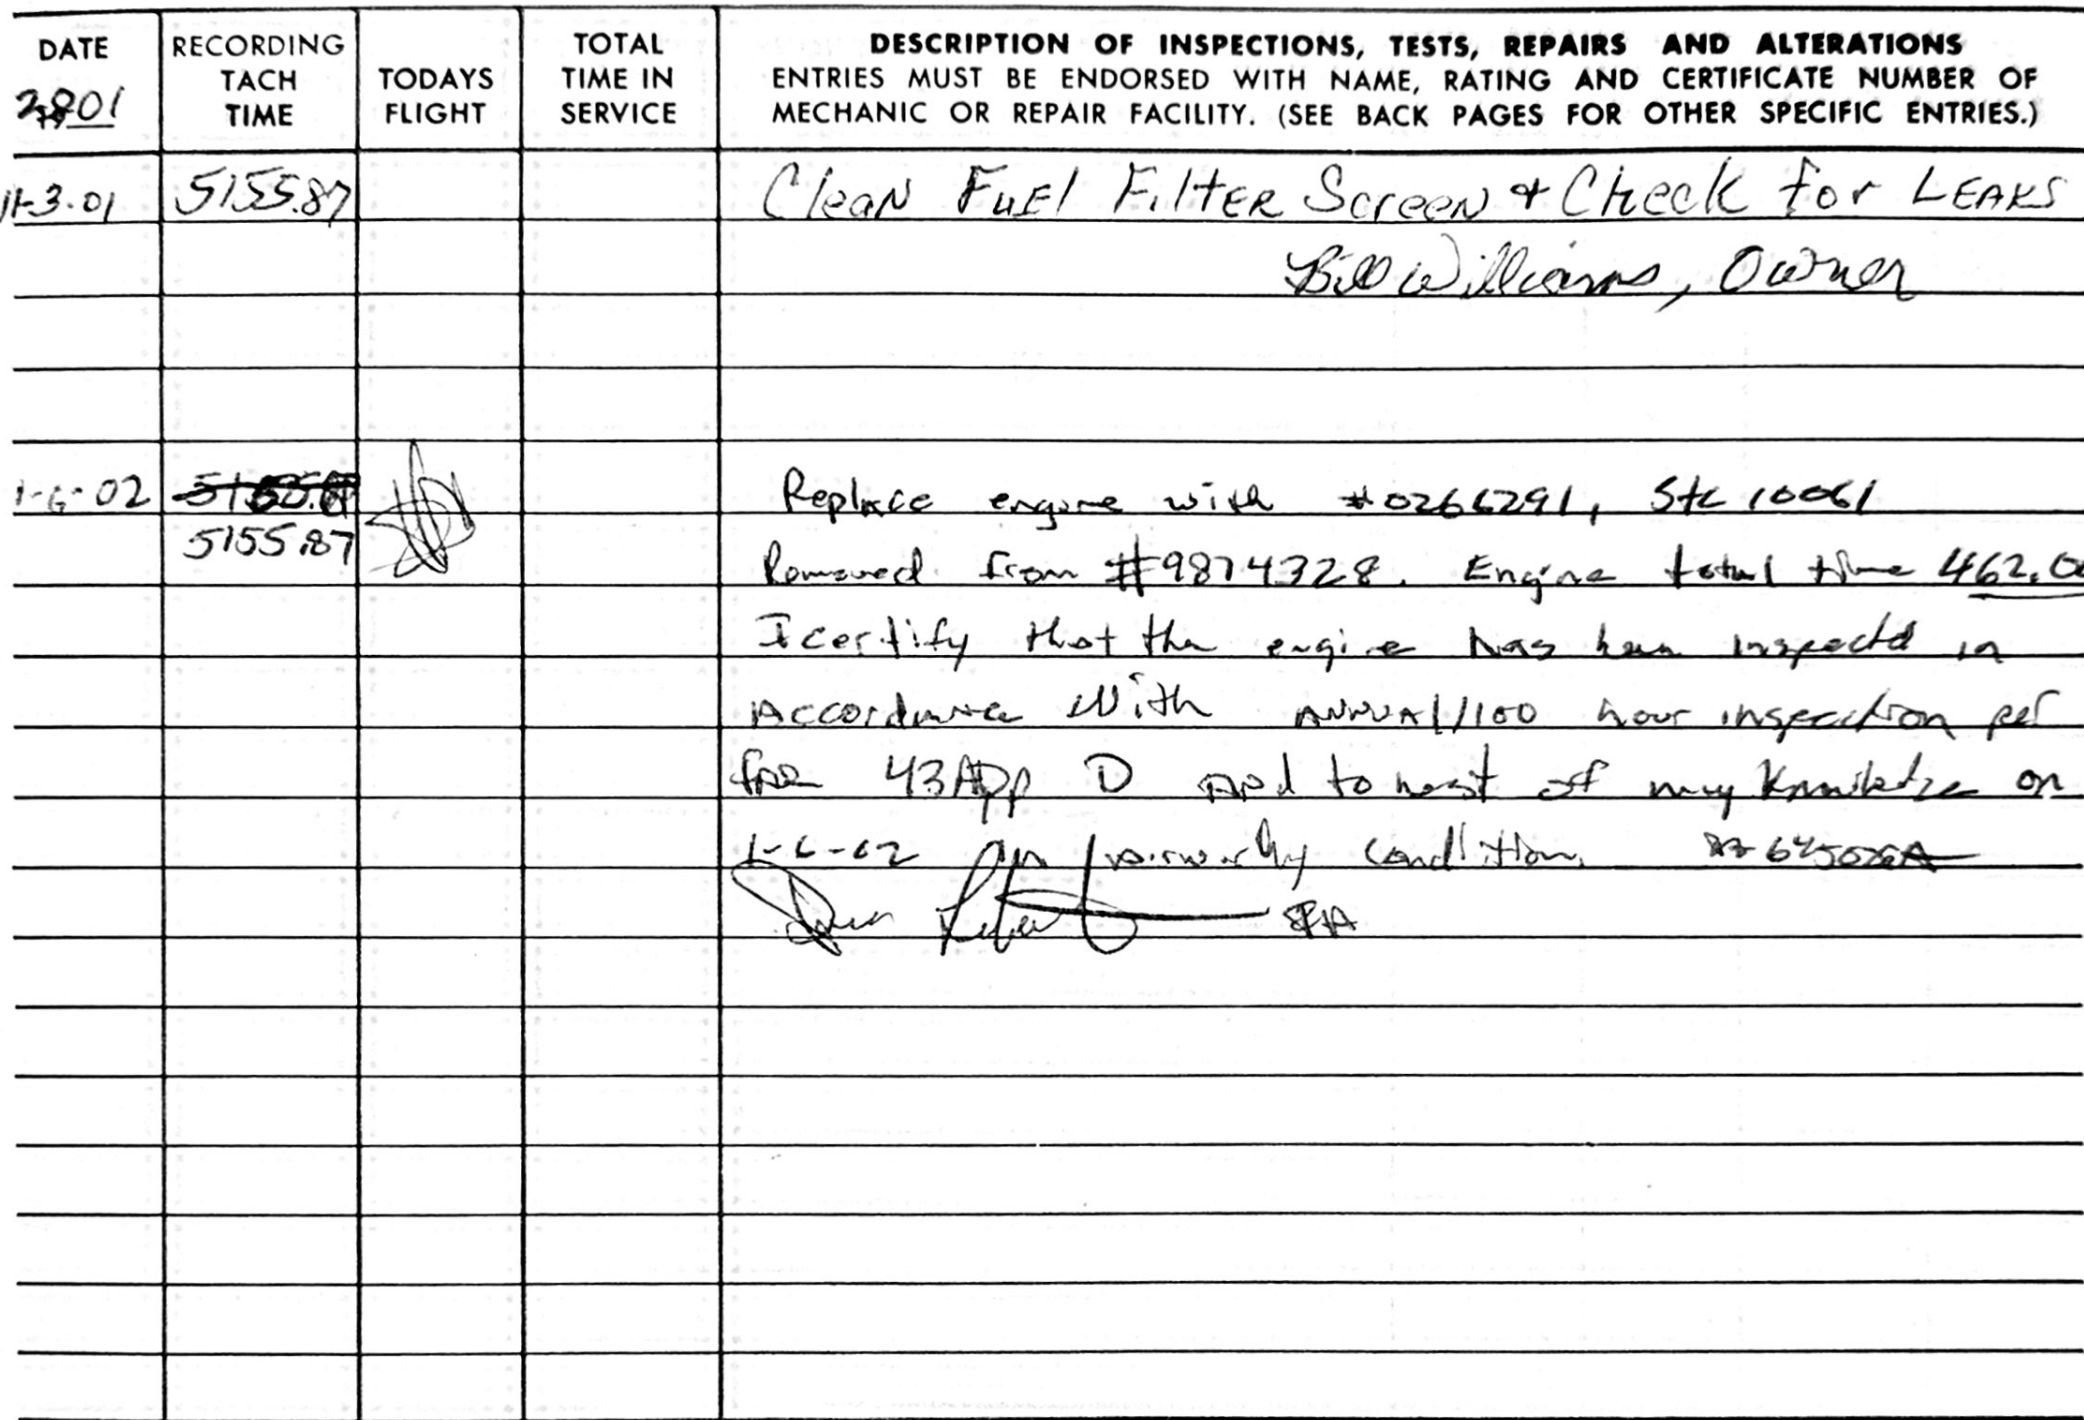 DATE RECORDING TACH TIME TODAYS FLIGHT TOTAL TIME IN SERVICE DESCRIPTION OF INSPECTIONS, TESTS, REPAIRS AND ALTERATIONS
ENTRIES MUST BE ENDORSED WITH NAME, RATING AND CERTIFICATE NUMBER OF
MECHANIC OR REPAIR FACILITY. (SEE BACK PAGES FOR OTHER SPECIFIC ENTRIES.)
01
11-3-01 5155.87 Clean Fuel Filter Screen + Check for LEAKS
Bill Williams, Owner
1-6-02 Replace engine with #0266291, Stc 10061
5155.87 Removed from #9874328. Engine total time 462.0
I certify that the engine has been inspected in
Accordance With ANNUAl/100 hour inspection per
far 43 App D and to best of my Knowledge on
1-6-02 airworthy condition.